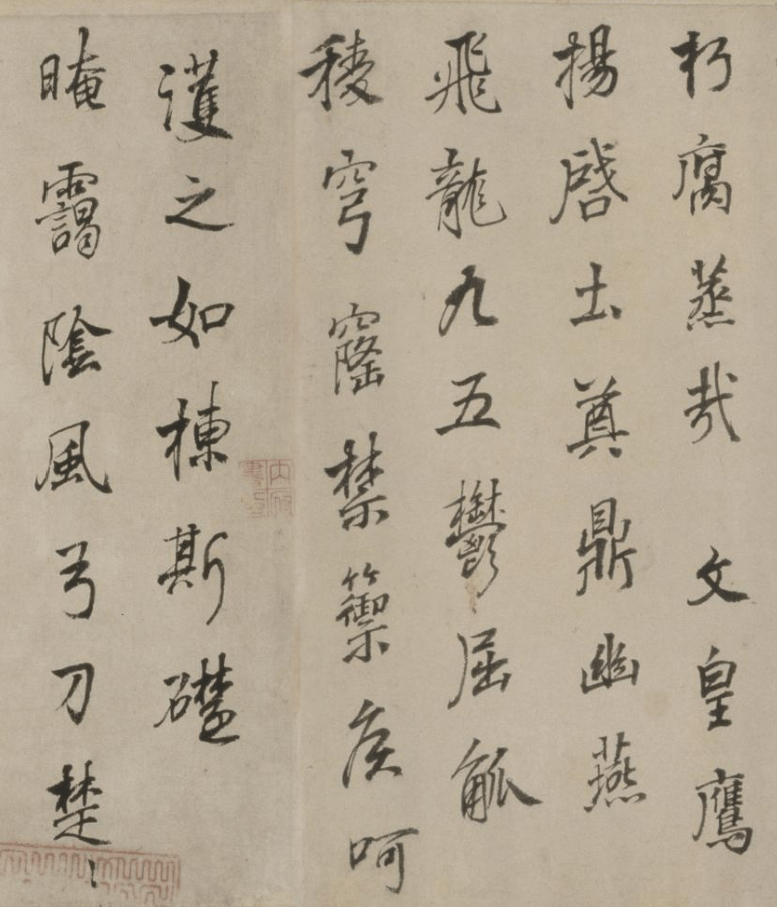 朽腐蒸哉 文皇鷹
揚啓土奠鼎幽燕
飛龍九五鬱屈觚
稜穹窿禁籞矦呵
護之如棟斯礎
晻靄陰風弓刀楚〻